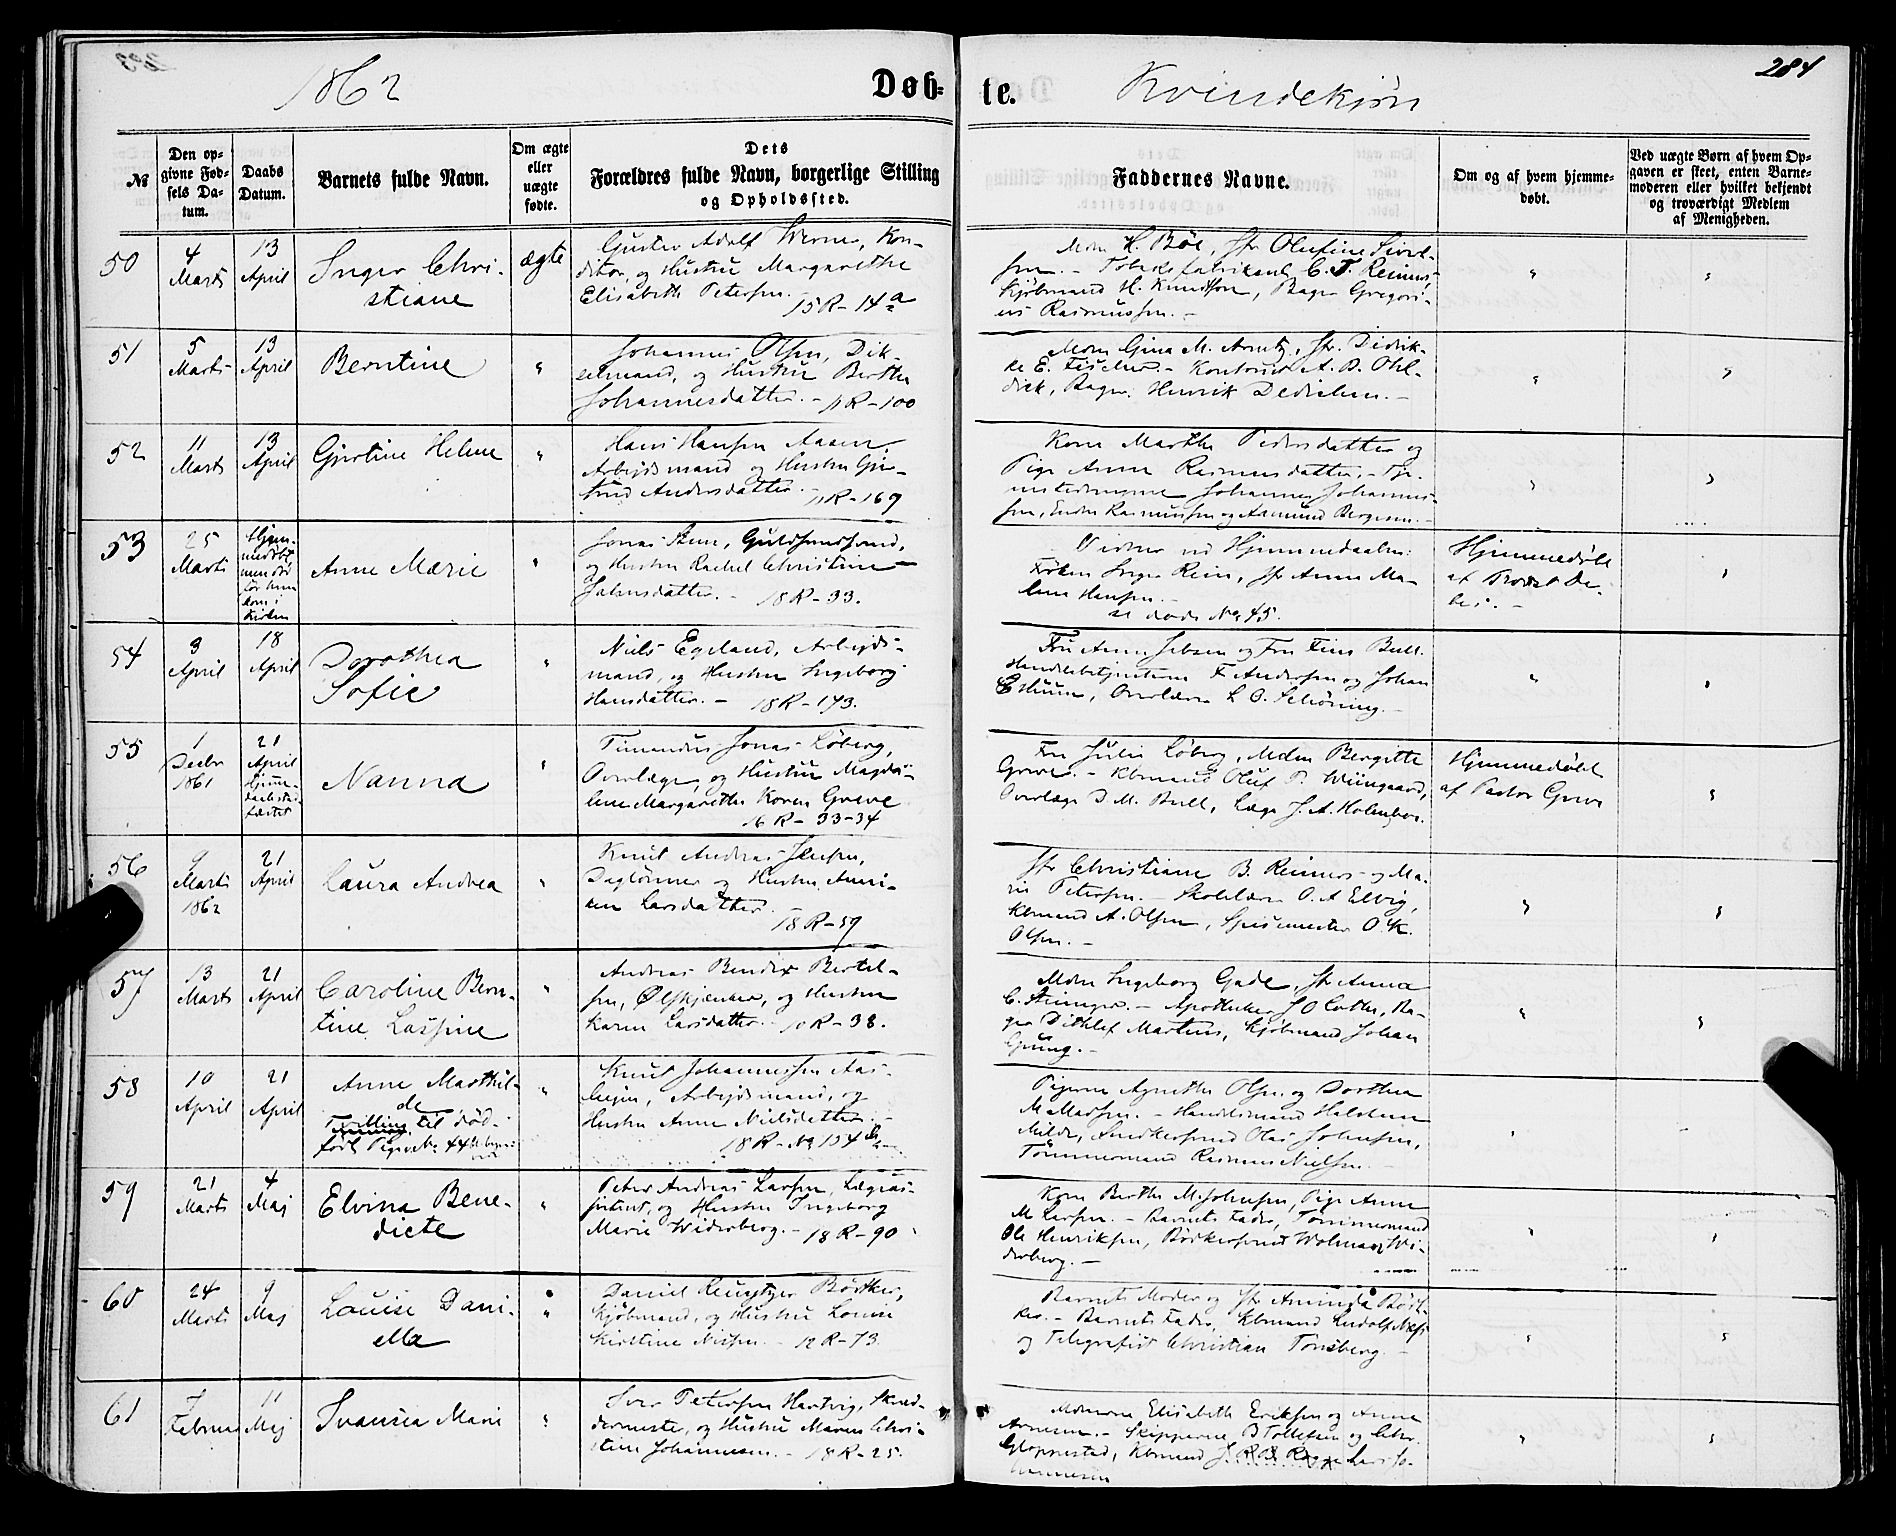 284
1862
Døb-
te.
Kvindekjøn
№
Den op-
givne Fød-
sels Da-
tum.
Daabs
Datum.
Barnets fulde Navn.
Om ægte
eller
uægte
fødte.
Dets
Forældres fulde Navn, borgerlige Stilling
og Opholdssted.
Faddernes Navne.
Om og af hvem hjemme-
døbt.
Ved uægte Børn af hvem Op-
gaven er skeet, enten Barne-
moderen eller hvilket bekjendt
og troværdigt Medlem
af Menigheden.
50
4
Marts
13
April
Inger Chri-
stiane
ægte
Gustav Adolf Werner, Kon-
ditor, og Hustru Margarethe
Elisabeth Petersen.
15 R – 14a
Mdm H. Böe, Jfr Olufine Sivert-
sen. – Tobaksfabrikant C. T. Reimers,
Kjöbmand H. Knudsen, Bager Gregori-
us Rasmussen. –
51
5
Marts
13
April
Berntine
"
Johannes Olsen,
og Hustru Berthe
Johannesdatter. – 11 R – 100
Mdm Gina M. Arntz, Jfr. Didrik-
ke E. Fischer. – Kontorist A. B. Ohl-
dick, Bager Henrik Dedichen. –
52
11
Marts
13
April
Gjertine Helene
"
Hans Hansen Aasen,
Arbejdsmand og Hustru Gje-
trud Andersdatter. –
11 R – 169
Kone Marthe Pedersdatter og
Pige Anne Rasmusdatter. – Tje-
nestedrengene Johannes Johannes-
sen, Endre Rasmussen og Aamund Bergesen. –
53
25
Marts
Hjem-
medöbt
men död
för hun
kom i
Kirken
Anne Marie
"
Jonas Steen, Guldsmedsvend,
og Hustru Rachel Christine
Johnsdatter. – 18 R – 33.
Vidner ved Hjemmedaaben:
Fröken Inger Rein, Jfr Anne Ma-
lene Hansen. –
se döde No 45.
Hjemmedöbt
af Provst De-
bes. –
54
3
April
18
April
Dorothea
Sofie
"
Niels Egeland, Arbejds-
mand, og Hustru Ingeborg
Hansdatter. – 18 R – 173.
Fru Anne Jebsen og Fru Fine Bull.
Handelsbetjentene F. Andersen og Johan
Overlærer L. O. Schöning. –
55
1
Decbr
1861
21
April
Hjem-
Nanna
"
Timandus Jonas Löberg,
Overlæge, og Hustru Magda-
lene Margarethe Koren Greve
16 R – 33-34
Fru Julie Löberg, Mdm Bergitte
Greve. – Kbmand Oluf P. Wiingaard,
Overlæge D. M. Bull, Læge J. A. Holmboe.
Hjemmedöbt
af Pastor Greve
56
9
Marts
1862
21
April
Laura Andrea
"
Knut Andreas Jensen,
Daglönner og Hustru
Larsdatter.
18 R – 59
Jfr Christiane B. Reimers og Ma-
rie Petersen. – Skolelærer O. A. Elvig,
Kbmand A. Olsen, O. K.
Olsen. –
57
13
Marts
21
April
Caroline Bern-
tine Lassine
"
Andreas Bendix Bertel-
sen, Ölskjænker, og Hustru
Karen Larsdatter. 10 R – 38.
Mdm Ingeborg Gade, Jfr Anna
C. – Apotheker J O Lothe, Ba-
ger Dithlef Martens, Kjöbmand Johan
Gjung. –
58
10
April
21
April
Anne Marthil-
de
Tvilling til död-
född Pige No 44
"
Knut Johannessen Aas-
heim, Arbejdsmand, og
Hustru Anne Nielsdatter. –
18 R – No 154 b
Pigerne Agnethe Olsen og Dorthea
M. Madsen. – Handelsmand Halstein
Milde, Snedkersvend Olai Johnsen,
Tömmermand Rasmus Nielsen. –
59
21
Marts
4
Maj
Elvina Bene-
dicte
"
Peter Andreas Larsen, Lægeas-
sistent, og Hustru Ingeborg
Marie Widerberg. – 18 R – 90
Kone Berthe M. Johnsen, Pige Anne
M Larsen. – Barnets Fader, Tömmermand
Ole Henriksen, Bödkersvend Wolmar Wi-
derberg. –
60
24
Marts
9
Maj
Louise Dani-
ella
"
Daniel Böttker,
Kjöbmand, og Hustru Louise
Kirstine Nissen. – 12 R – 73.
Barnets Moder og Jfr Aminda Bött-
ker. – Barnets Fader, Kbmand Rudolf
og Telegrafist Christian Tönsberg. –
61
7
Februar
11
Maj
Svansia Marie
"
Iver Petersen Hartvig, Skræd-
dermester, og Hustru Maren Chri-
stine Johannesen. – 18 R – 25.
Mdmerne Elisabeth Eriksen og Anna
Arnesen. – Skipperne B Tollefsen og Chr.
Gloppestad, Kbmand J.